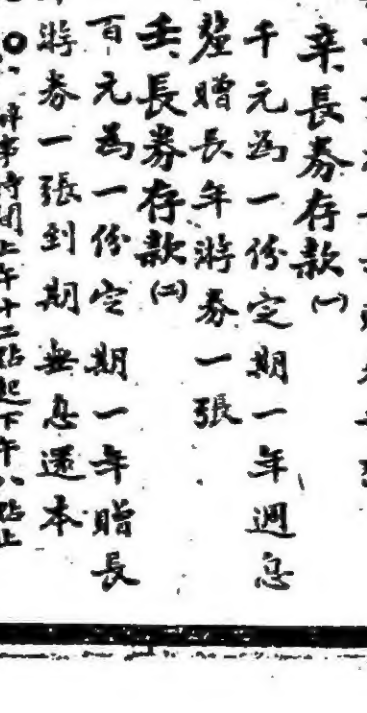 辛、長券存款(一)
千元為一份定期一年週息
釐贈長年游券一張
壬、長券存款(二)
百元為一份定期一年贈長
游券一張到期無息還本
事時間上午十二點起下午八點止